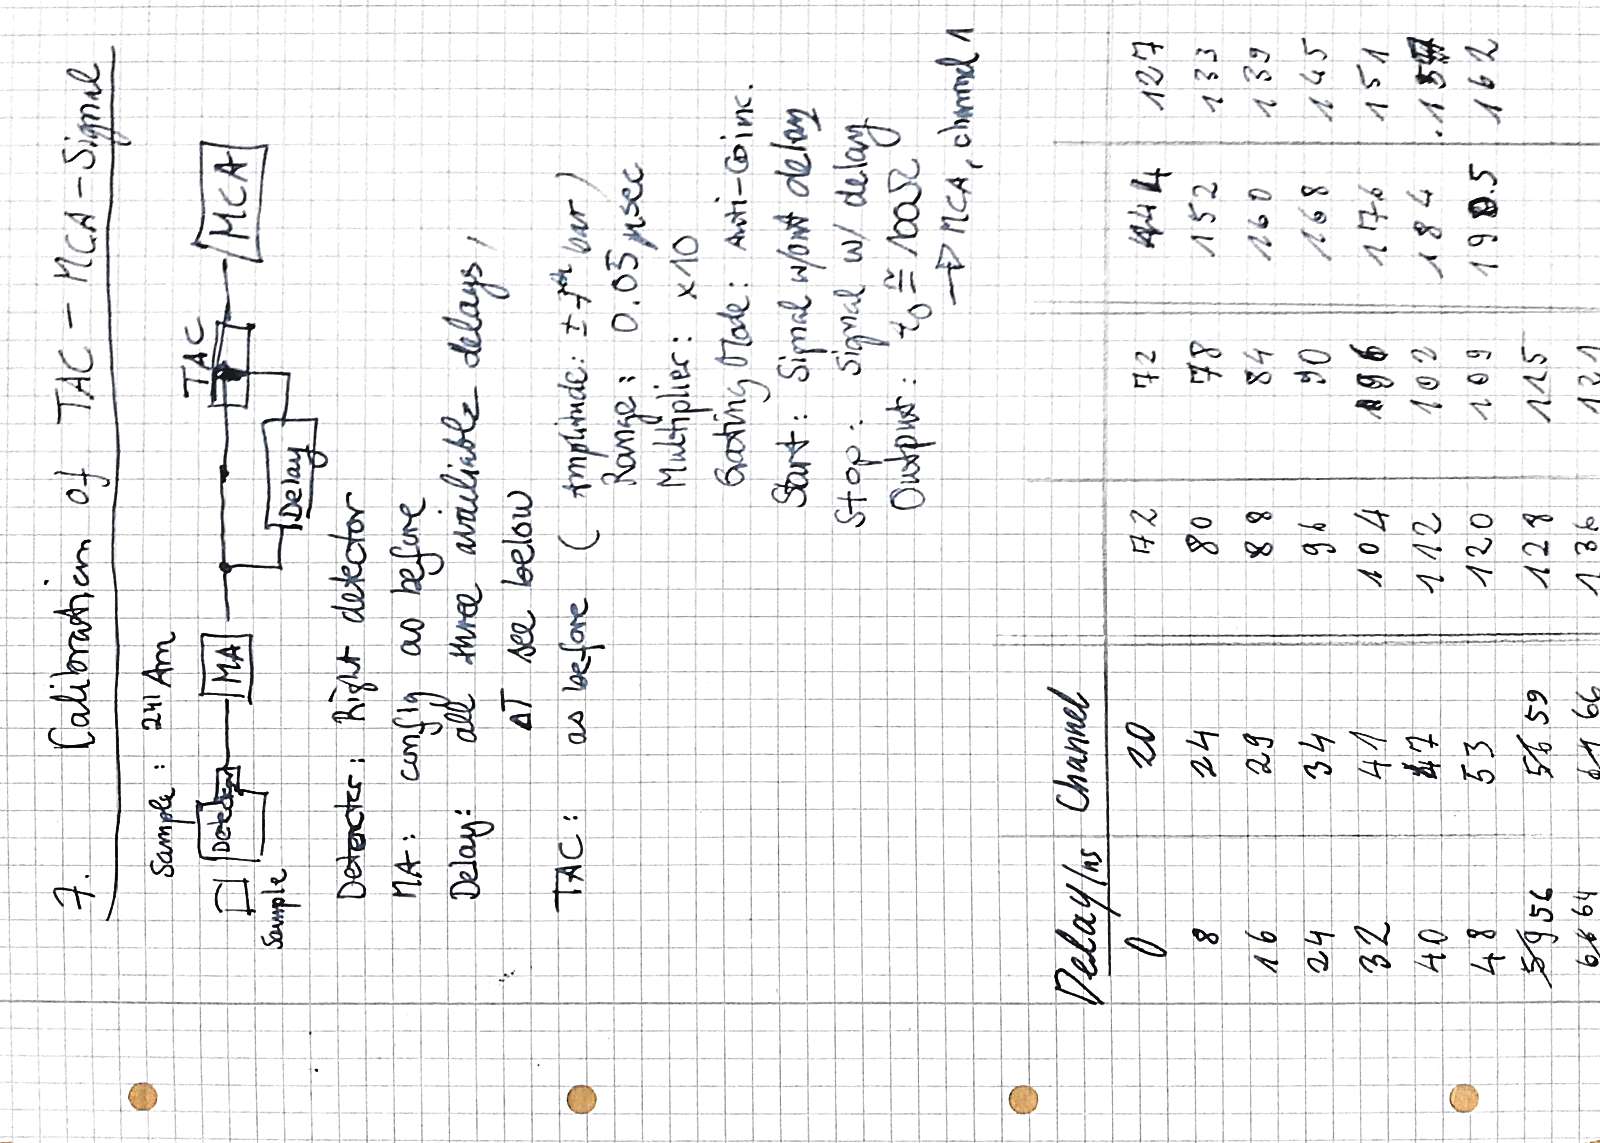 7. Calibration of TAC-MCA-Signal
Sample: 241 Am
Sample Detector MA Delay TAC MCA
Detector: Right detector
MA: config as before
Delay: all three availiable delays,
ΔT see below
TAC: as before ( Amplitude:
Range: 0.05 µsec
Multiplier: x10
Gating Mode: Anti-Coinc.
Start: Signal w/out delay
Stop: Signal w/ delay
Output: z0 ≅ 100Ω
→ MCA, channel 1
Delay/ns Channel
0 20 72 72 144 127
8 24 80 78 152 133
16 29 88 84 160 139
24 34 96 90 168 145
32 41 104 96 176 151
40 47 112 102 184 157
48 53 120 109 190.5 162
59 56 56 59 128 115
64 66 136 121